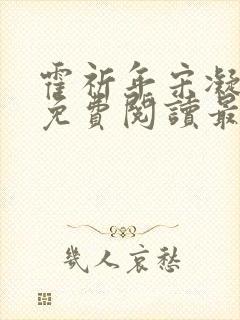 霍祈年宋凝
免費閱讀最
幾人哀愁